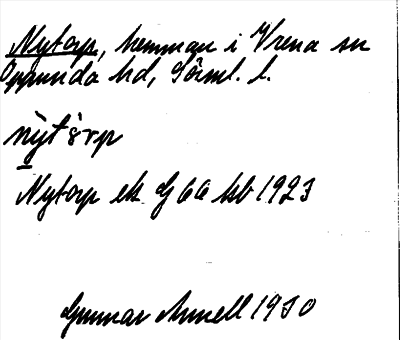 Nytorp, hemman i Vrena sn
Oppunda hd, Sörml. l.
nỳtòrp
Nytorp ek G 66 hb 1923
Gunnar 1930